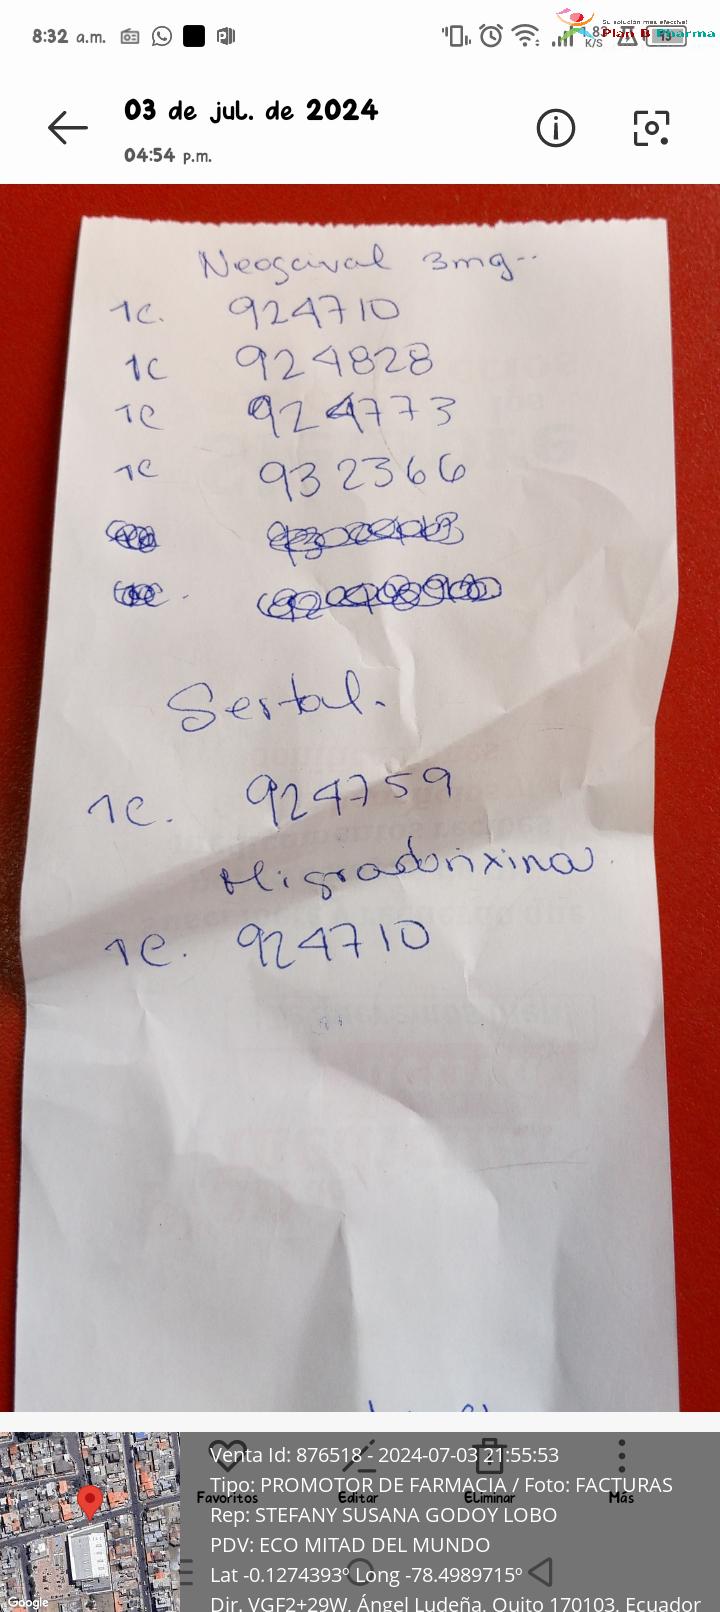 8:32 a.m.
83
K/S
13
Su solución más efectiva!
Plan B Pharma
03 de jul. de 2024
04:54 p.m.
Neogaival 3mg..
1c. 924710
1c 924828
1c 924773
1c 932366
Sertal.
1c. 924759
Migradorixina.
1c. 924710
Venta Id: 876518 - 2024-07-03 21:55:53
Tipo: PROMOTOR DE FARMACIA / Foto: FACTURAS
Favoritos
Editar
Eliminar
Más
Rep: STEFANY SUSANA GODOY LOBO
PDV: ECO MITAD DEL MUNDO
Lat -0.1274393º Long -78.4989715º
Google
Dir. VGF2+29W, Ángel Ludeña, Quito 170103, Ecuador